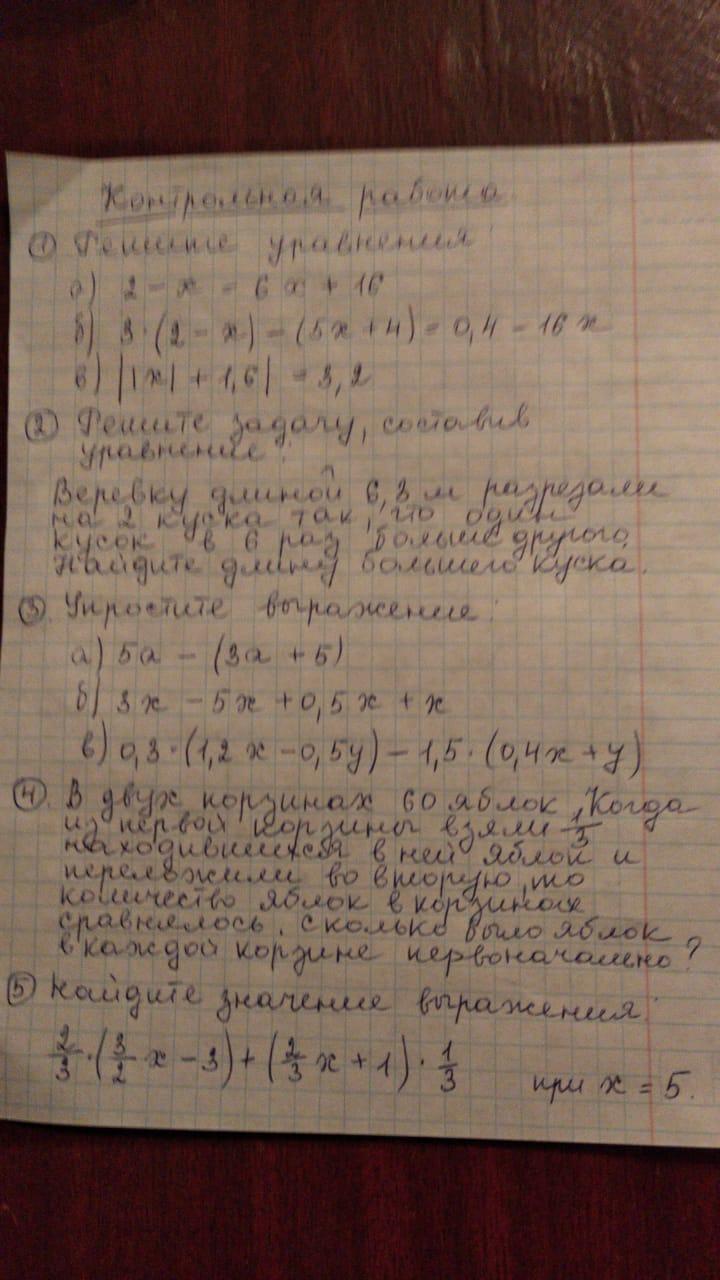 Контрольная работа
① Решите уравнения:
а) 2 - x = 6x + 16
б) 3·(2 - x) - (5x + 4) = 0,4 - 16x
в) ||x| + 1,6| = 3,2
② Решите задачу, составив
уравнение:
Веревку длиной 6,3 м разрезали
на 2 куска так, что один
кусок в 6 раз больше другого.
Найдите длину большего куска.
③ Упростите выражение:
а) 5a - (3a + 5)
б) 3x - 5x + 0,5x + x
в) 0,3·(1,2x - 0,5y) - 1,5·(0,4x + y)
④ В двух корзинах 60 яблок. Когда
из первой корзины взяли 1/3
находившихся в ней яблок и
переложили во вторую, то
количество яблок в корзинах
сравнялось. Сколько было яблок
в каждой корзине первоначально?
⑤ Найдите значение выражения:
2/3·(3/2 x - 3) + (2/3 x + 1)·1/3 при x = 5.